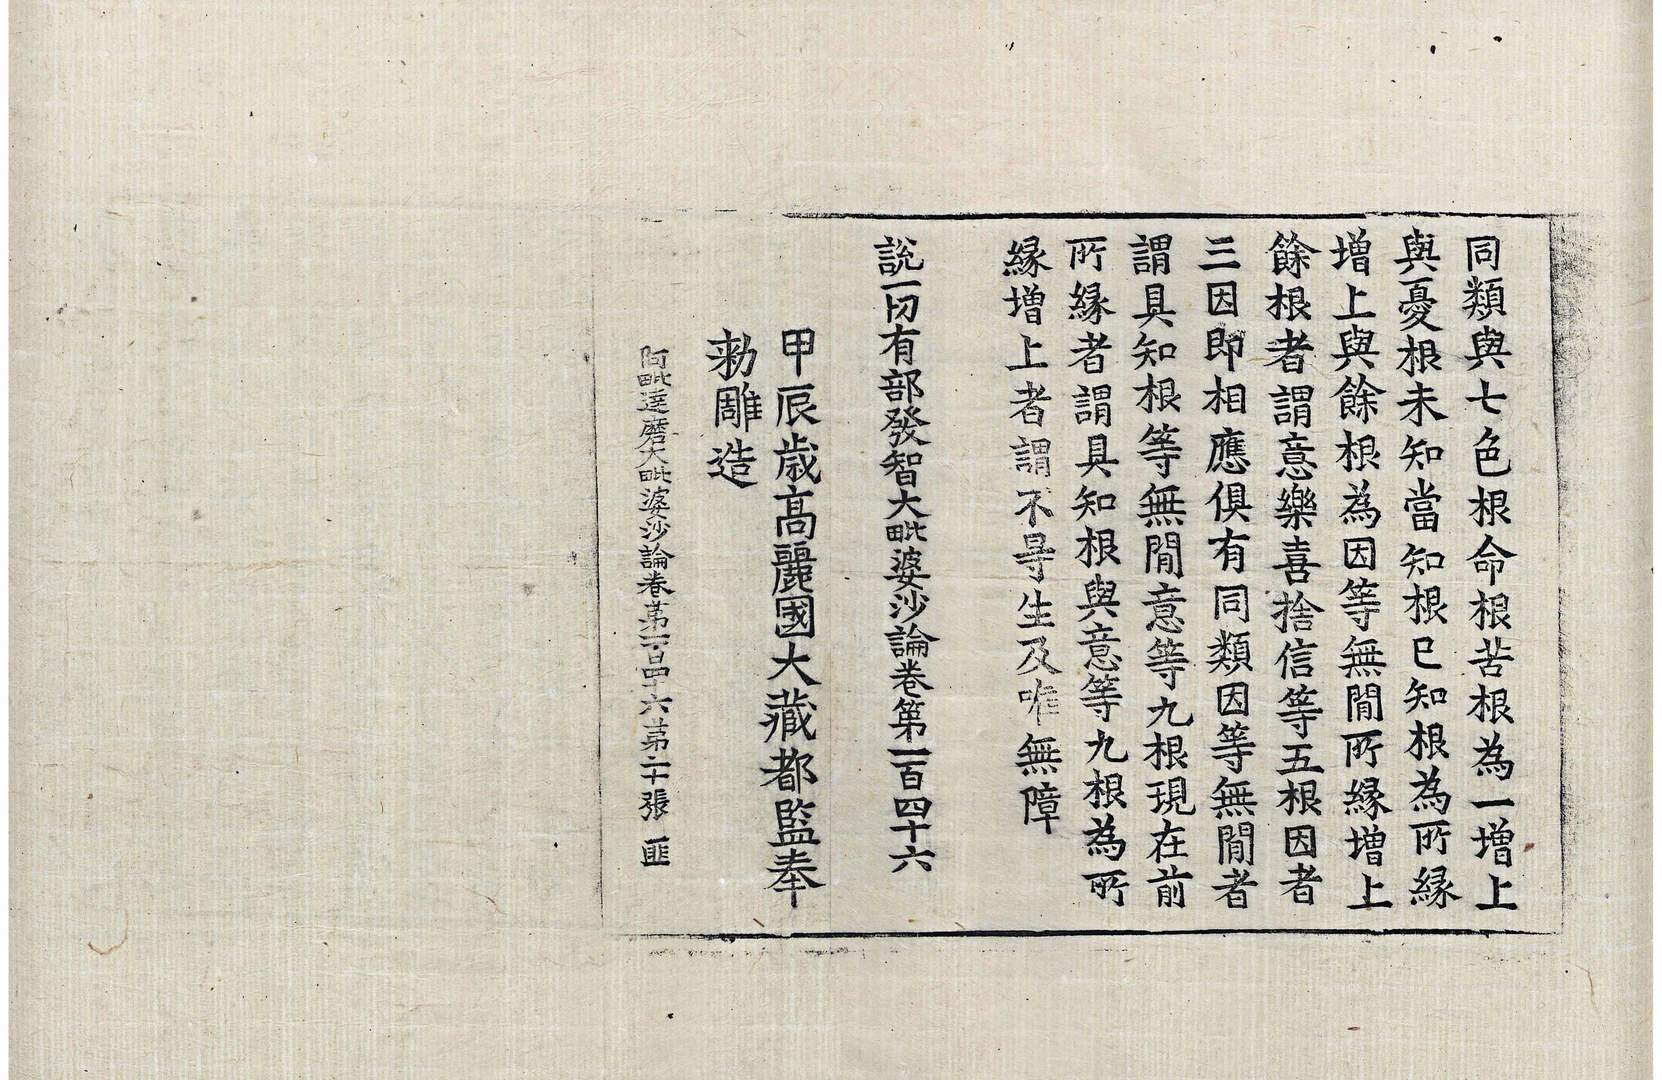 同類與七色根命根苦根為一增上
與憂根未知當知根已知根為所縁
增上與餘根為因等無間所縁增上
餘根者謂意樂喜捨信等五根因者
三因即相應俱有同類因等無間者
謂具知根等無間意等九根現在前
所縁者謂具知根與意等九根為所
縁增上者謂不㝵生及唯無障
說一切有部發智大毗婆沙論卷第一百四十六
甲辰歲高麗國大藏都監奉
勑雕造
阿毗達磨大毗婆沙論卷第一百四十六 第二十張 匪